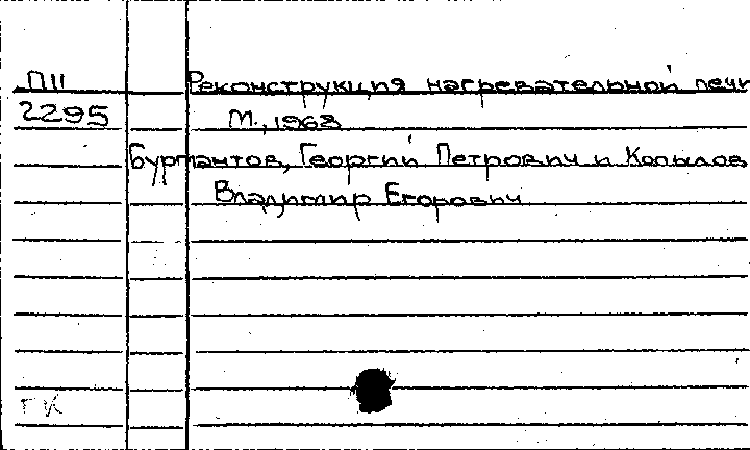 П11 Реконструкция нагревательной печи
2295 М., 1968
Бурмантов, Георгий Петрович и Копылов
Владимир Егорович
ГК